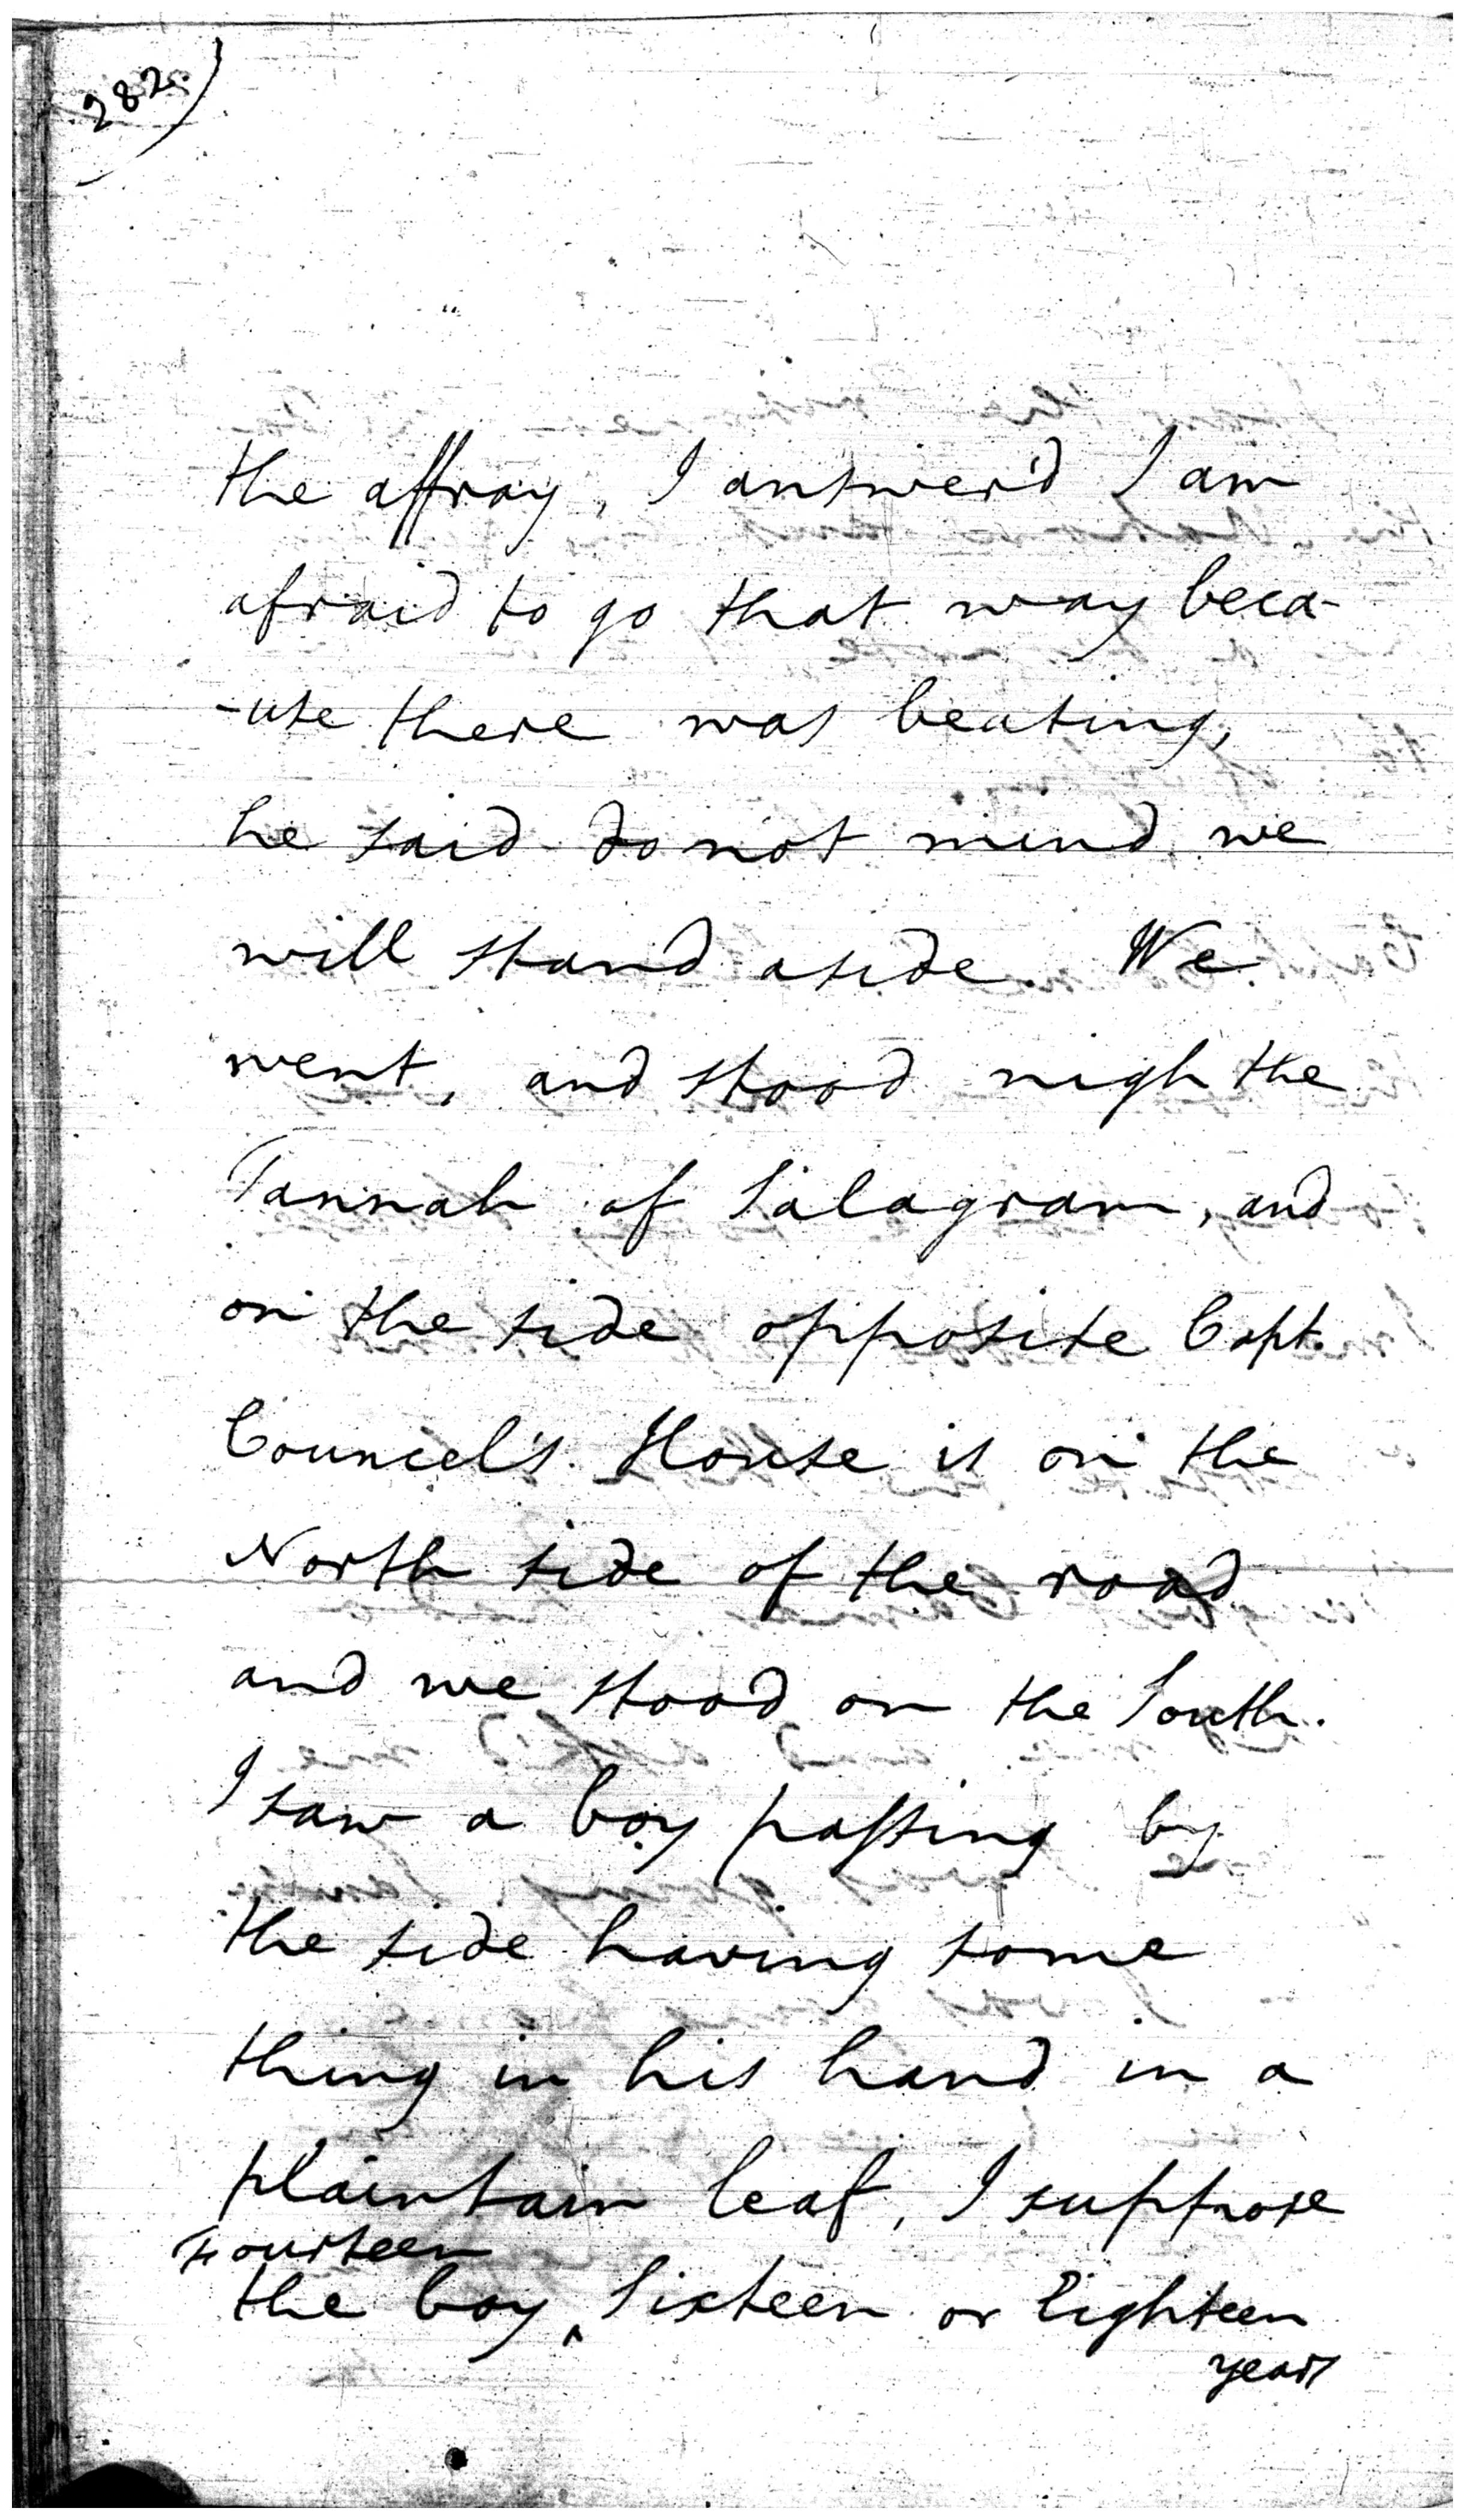 282)
the affray, I answer'd I am
afraid to go that way beca-
-use there was beating,
he said do not mind we
will stand aside. We
went, and stood nigh the
Tannah of Salagram, and
on the side opposite Capt.
Councel's House is on the
North side of the road
and we stood on the South.
I saw a boy passing by
the side having some
thing in his hand in a
plaintain leaf, I suppose
Fourteen
the boy ‸ Sixteen or Eighteen
years